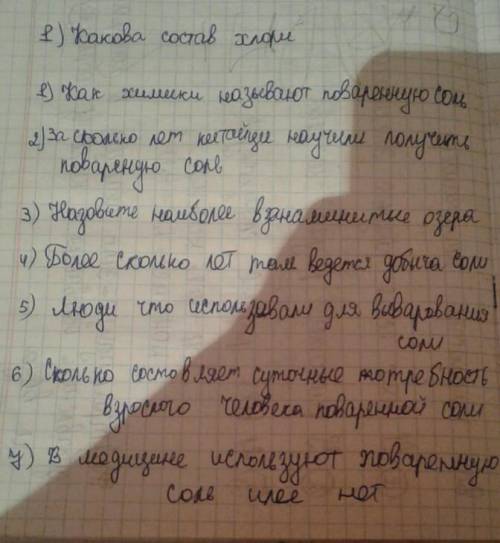 1) Какова состав хлори
1) Как химики называют поваренную соль
2) За сколько лет китайци научили получить
повареную соль
3) Назовите наиболее взнаминитые озера
4) Более сколько лет там ведется добыча соли
5) Люди что использавали для выварования
соли
6) Сколько составляет суточные потребность
взрослого человека поваренной соли
7) В медицине используют поваренную
соль илее нет